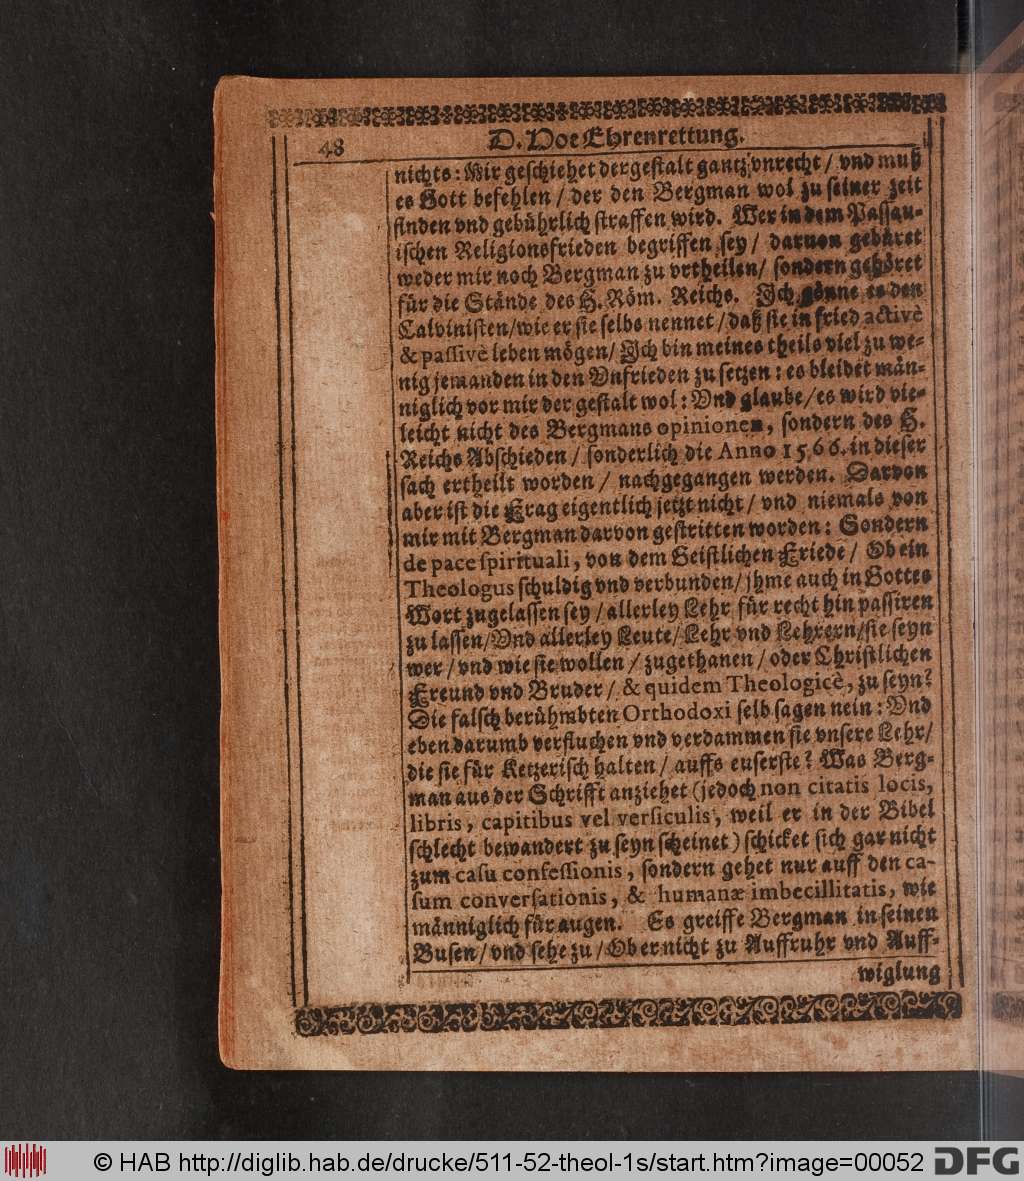 48
D. Hoe Ehrenrettung.
nichts: Mir geschiehet dergestalt gantz vnrecht / vnd muß
es Gott befehlen / der den Bergman wol zu seiner zeit
finden vnd gebührlich straffen wird. Wer in dem Passau-
ischen Religionsfrieden begriffen sey / daruon gebüret
weder mir noch Bergman zu vrtheilen / sondern gehöret
für die Stände des H. Röm. Reichs. Ich gönne es den
Calvinisten / wie er sie selbs nennet / daß sie in fried activè
& passivè leben mögen / Ich bin meines theils viel zu we-
nig jemanden in den Vnfrieden zu setzen: es bleibet män-
niglich vor mir der gestalt wol: Vnd glaube / es wird vie-
leicht nicht des Bergmans opinionen, sondern des H.
Reichs Abschieden / sonderlich die Anno 1566. in dieser
sach ertheilt worden / nachgegangen werden. Darvon
aber ist die Frag eigentlich jetzt nicht / vnd niemals von
mir mit Bergman darvon gestritten worden: Sondern
de pace spirituali, von dem Geistlichen Friede / Ob ein
Theologus schuldig vnd verbunden / jhme auch in Gottes
Wort zugelassen sey / allerley Lehr für recht hin passiren
zu lassen / Vnd allerley Leute / Lehr vnd Lehrern / sie seyn
wer / vnd wie sie wollen / zugethanen / oder Christlichen
Freund vnd Bruder / & quidem Theologicè, zu seyn?
Die falsch berühmbten Orthodoxi selb sagen nein: Vnd
eben darumb verfluchen vnd verdammen sie vnsere Lehr /
die sie für Ketzerisch halten / auffs euserste? Was Berg-
man aus der Schrifft anziehet (jedoch non citatis locis,
libris, capitibus vel versiculis, weil er in der Bibel
schlecht bewandert zu seyn scheinet) schicket sich gar nicht
zum casu confessionis, sondern gehet nur auff den ca-
sum conversationis, & humanæ imbecillitatis, wie
männiglich für augen. Es greiffe Bergman in seinen
Busen / vnd sehe zu / Ob er nicht zu Auffruhr vnd Auff-
wiglung
© HAB http://diglib.hab.de/drucke/511-52-theol-1s/start.htm?image=00052
DFG